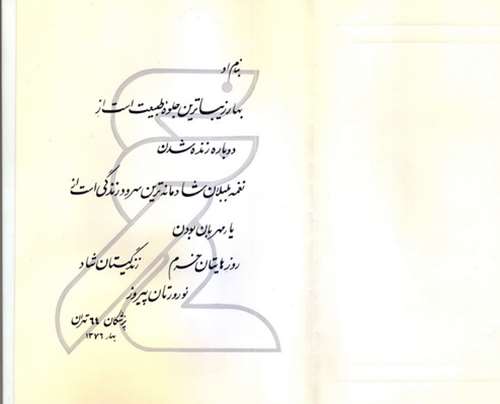 بنام او
بهار زیباترین جلوه طبیعت است از
دوباره زنده شدن
نغمه بلبلان شادمانه ترین سرود زندگی است از
یار مهربان بودن
روزهایتان خرم زندگیتان شاد
نوروزتان پیروز
پزشکان ٦٤ تهران
بهار ١٣٧٦